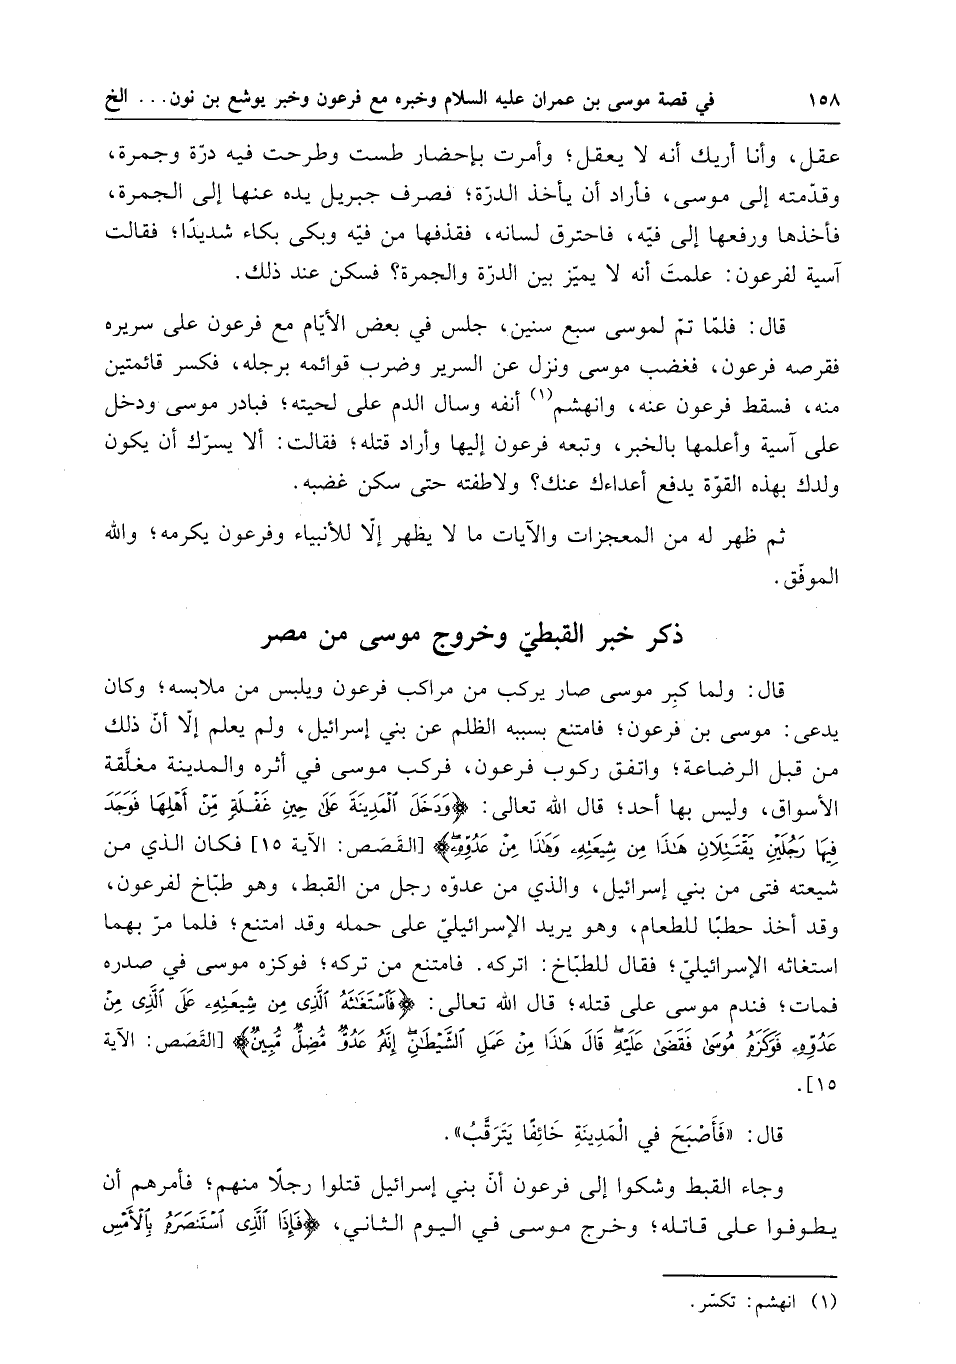 ١٥٨ في قصة موسى بن عمران عليه السلام وخبره مع فرعون وخبر يوشع بن نون... الخ
عقل، وأنا أريك أنه لا يعقل؛ وأمرت بإحضار طست وطرحت فيه درّة وجمرة،
وقدّمته إلى موسى، فأراد أن يأخذ الدرّة؛ فصرف جبريل يده عنها إلى الجمرة،
فأخذها ورفعها إلى فيّه، فاحترق لسانه، فقذفها من فيّه وبكى بكاء شديدًا؛ فقالت
آسية لفرعون: علمتَ أنه لا يميّز بين الدرّة والجمرة؟ فسكن عند ذلك.
قال: فلمّا تمّ لموسى سبع سنين، جلس في بعض الأيّام مع فرعون على سريره
فقرصه فرعون، فغضب موسى ونزل عن السرير وضرب قوائمه برجله، فكسر قائمتين
منه، فسقط فرعون عنه، وانهشم(١) أنفه وسال الدم على لحيته؛ فبادر موسى ودخل
على آسية وأعلمها بالخبر، وتبعه فرعون إليها وأراد قتله؛ فقالت: ألا يسرّك أن يكون
ولدك بهذه القوّة يدفع أعداءك عنك؟ ولاطفته حتى سكن غضبه.
ثم ظهر له من المعجزات والآيات ما لا يظهر إلّا للأنبياء وفرعون يكرمه؛ والله
الموفّق.
ذكر خبر القبطيّ وخروج موسى من مصر
قال: ولما كبِر موسى صار يركب من مراكب فرعون ويلبس من ملابسه؛ وكان
يدعى: موسى بن فرعون؛ فامتنع بسببه الظلم عن بني إسرائيل، ولم يعلم إلّا أنّ ذلك
من قبل الرضاعة؛ واتفق ركوب فرعون، فركب موسى في أثره والمدينة مغلَّقة
الأسواق، وليس بها أحد؛ قال الله تعالى: ﴿وَدَخَلَ ٱلْمَدِينَةَ عَلَىٰ حِينِ غَفْلَةٍ مِّنْ أَهْلِهَا فَوَجَدَ
فِيهَا رَجُلَيْنِ يَقْتَتِلَانِ هَٰذَا مِن شِيعَتِهِۦ وَهَٰذَا مِنْ عَدُوِّهِۦۖ﴾ [القَصَص: الآية ١٥] فكان الذي من
شيعته فتى من بني إسرائيل، والذي من عدوّه رجل من القبط، وهو طبّاخ لفرعون،
وقد أخذ حطبًا للطعام، وهو يريد الإسرائيليّ على حمله وقد امتنع؛ فلما مرّ بهما
استغاثه الإسرائيليّ؛ فقال للطبّاخ: اتركه. فامتنع من تركه؛ فوكزه موسى في صدره
فمات؛ فندم موسى على قتله؛ قال الله تعالى: ﴿فَٱسْتَغَٰثَهُ ٱلَّذِى مِن شِيعَتِهِۦ عَلَى ٱلَّذِى مِنْ
عَدُوِّهِۦ فَوَكَزَهُۥ مُوسَىٰ فَقَضَىٰ عَلَيْهِۖ قَالَ هَٰذَا مِنْ عَمَلِ ٱلشَّيْطَٰنِۖ إِنَّهُۥ عَدُوٌّ مُّضِلٌّ مُّبِينٌ﴾ [القَصَص: الآية
١٥].
قال: «فَأَصْبَحَ في الْمَدِينَةِ خَائِفًا يَتَرَقَّبُ».
وجاء القبط وشكوا إلى فرعون أنّ بني إسرائيل قتلوا رجلًا منهم؛ فأمرهم أن
يطوفوا على قاتله؛ وخرج موسى في اليوم الثاني، ﴿فَإِذَا ٱلَّذِى ٱسْتَنصَرَهُۥ بِٱلْأَمْسِ
(١) انهشم: تكسّر.